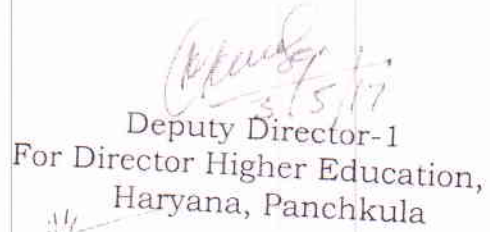 3/5/17
Deputy Director-1
For Director Higher Education,
Haryana, Panchkula